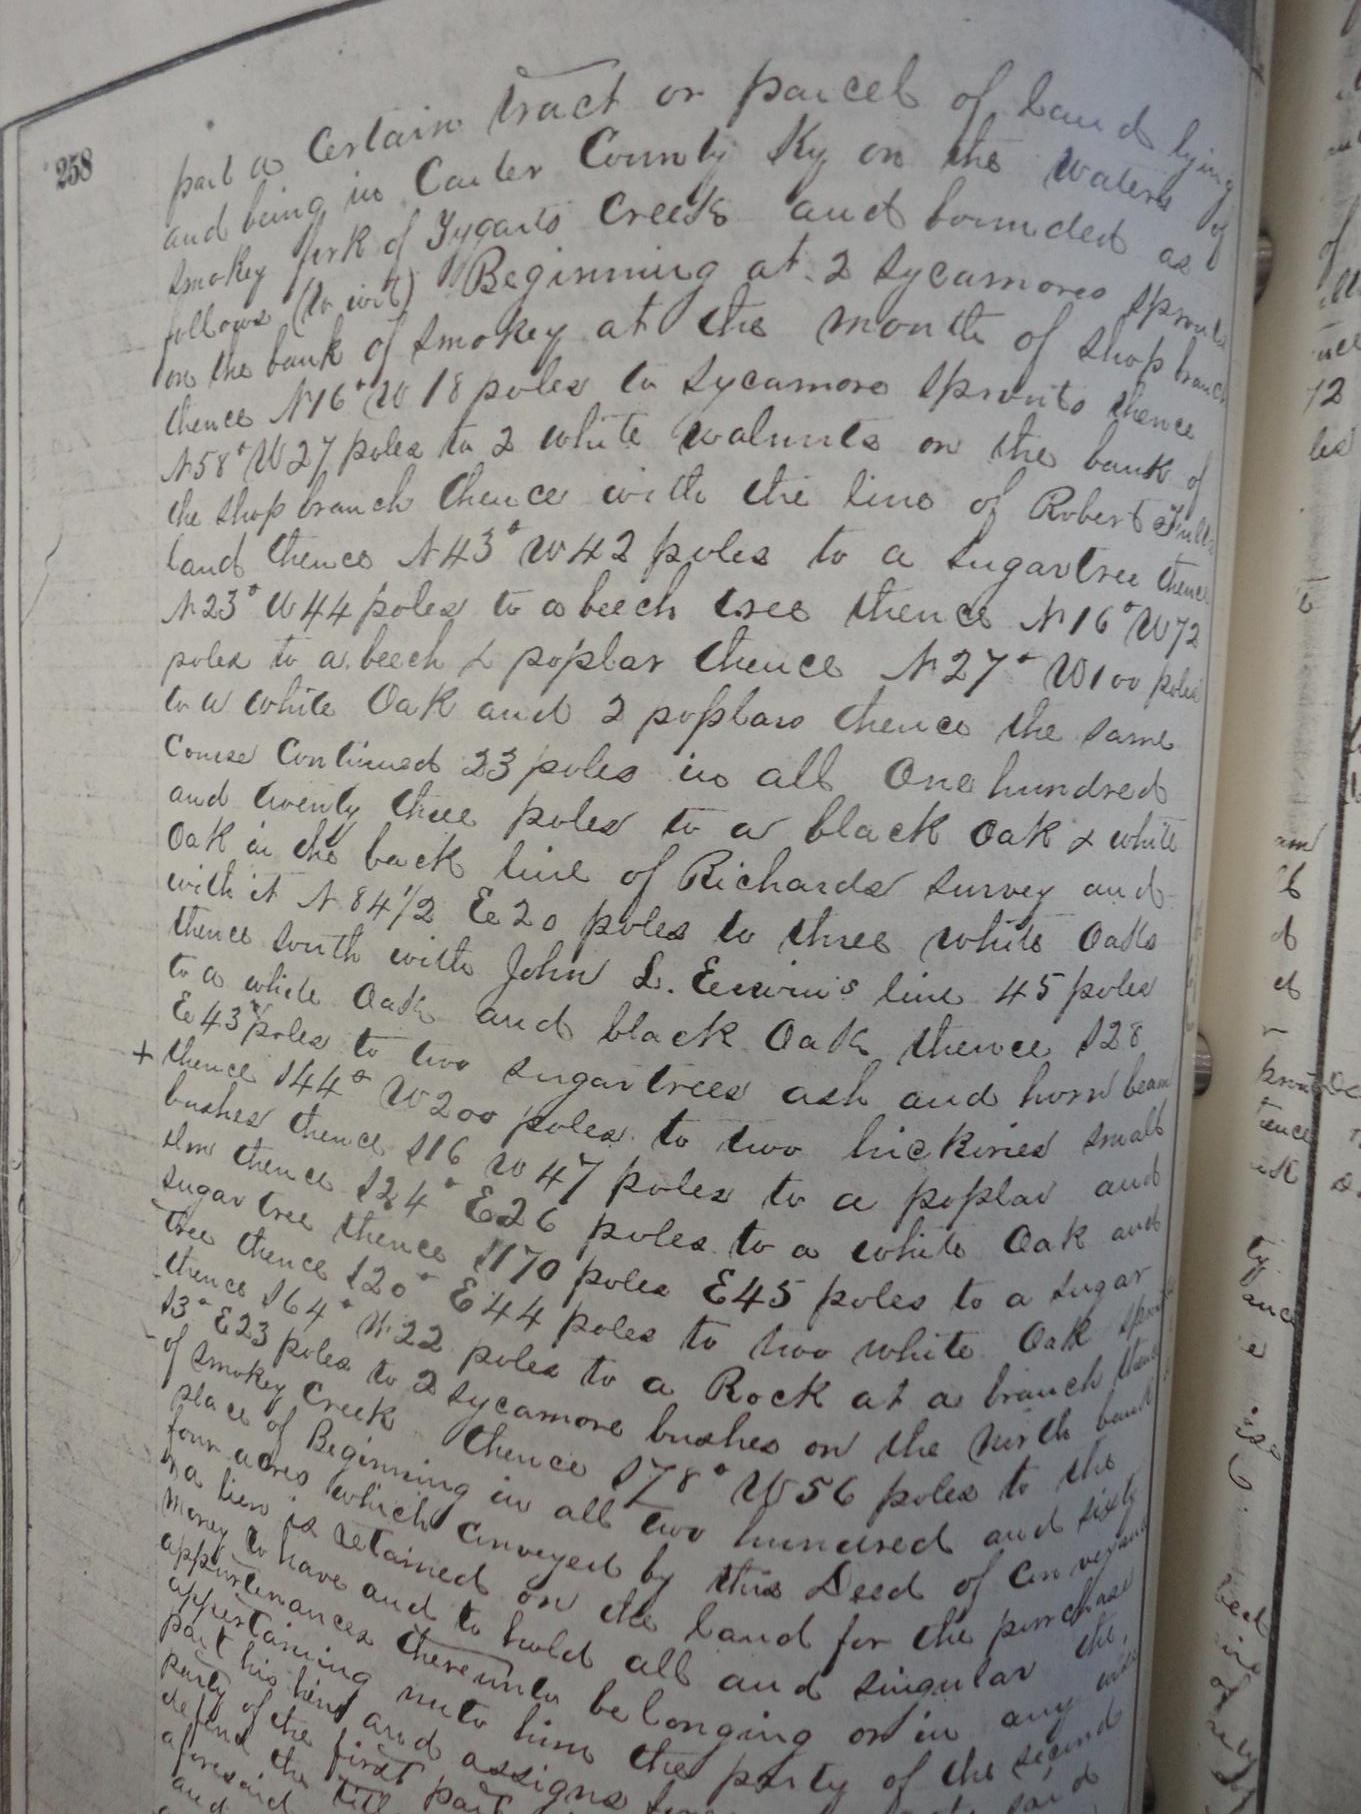 258
part a Certain tract or parcel of Land lying
and being in Carter County Ky on the waters of
Smokey fork of Tygarts Creek and bounded as
follows (to wit) Beginning at 2 Sycamores sprouts
on the bank of Smokey at the mouth of shop branch
thence N16° W 18 poles to sycamore sprouts thence
N58° W27 poles to 2 white walnuts on the bank of
the shop branch thence with the line of Robert
land thence N43° W42 poles to a sugartree thence
N23° W44 poles to a beech tree thence N16° W72
poles to a beech & poplar thence N27° W100 poles
to a white Oak and 2 poplars thence the same
Course Continued 23 poles in all One hundred
and twenty three poles to a black Oak & white
Oak in the back line of Richards survey and
with it N 84 1/2 E 20 poles to three white Oaks
thence south with John L. Erwin's line 45 poles
to a white Oak and black Oak thence S28
E 43 poles to two sugartrees ash and horn beam
+ thence S44° W200 poles to two hickories small
bushes thence S16 W47 poles to a poplar and
elm thence S24° E26 poles to a white Oak and
sugar tree thence S170 poles E45 poles to a sugar
tree thence S20° E44 poles to two white Oak
thence S64° W22 poles to a Rock at a branch thence
S3° E23 poles to 2 sycamore bushes on the North bank
of Smokey Creek thence S78° W56 poles to the
place of Beginning in all two hundred and sixty
four acres which conveyed by this Deed of Conveyance
a lien is retained on the land for the purchase
money to have and to hold all and singular the
appurtenances thereunto belonging or in any wise
appertaining unto him the party of the second
part his heirs and assigns
party of the first part
defend the
aforesaid
and